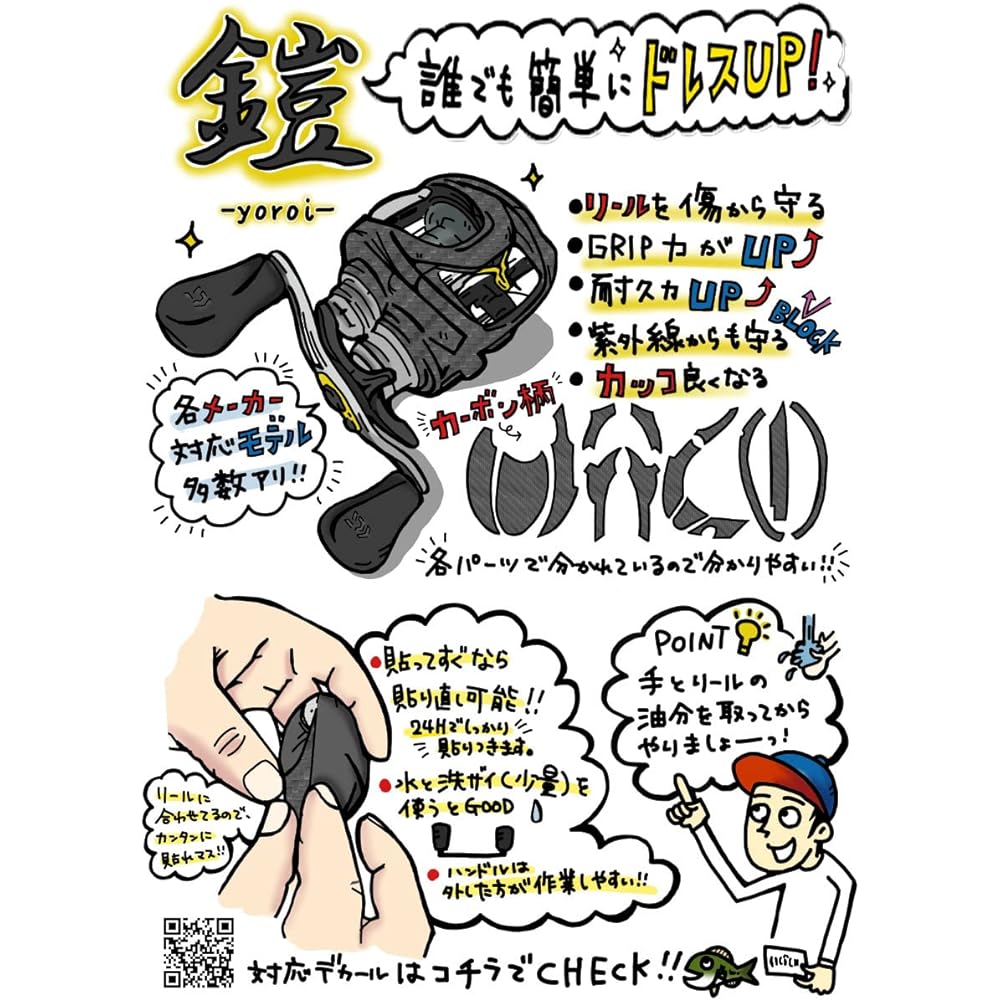 鎧
-yoroi-
誰でも簡単にドレスUP!
•リールを傷から守る
•GRIP力がUP
•耐久力UP
BLOCK
•紫外線からも守る
•カッコ良くなる
各メーカー
対応モデル
多数アリ!!
カーボン柄
各パーツで分かれているので分かりやすい!!
•貼ってすぐなら
貼り直し可能!!
24Hでしっかり
貼りつきます。
•水と洗ザイ(少量)を
使うとGOOD
•ハンドルは
外した方が作業しやすい!!
リールに
合わせてるので、
カンタンに
貼れマス!!
POINT
手とリールの
油分を取ってから
やりましょーっ!
対応デカールはコチラでCHECK!!